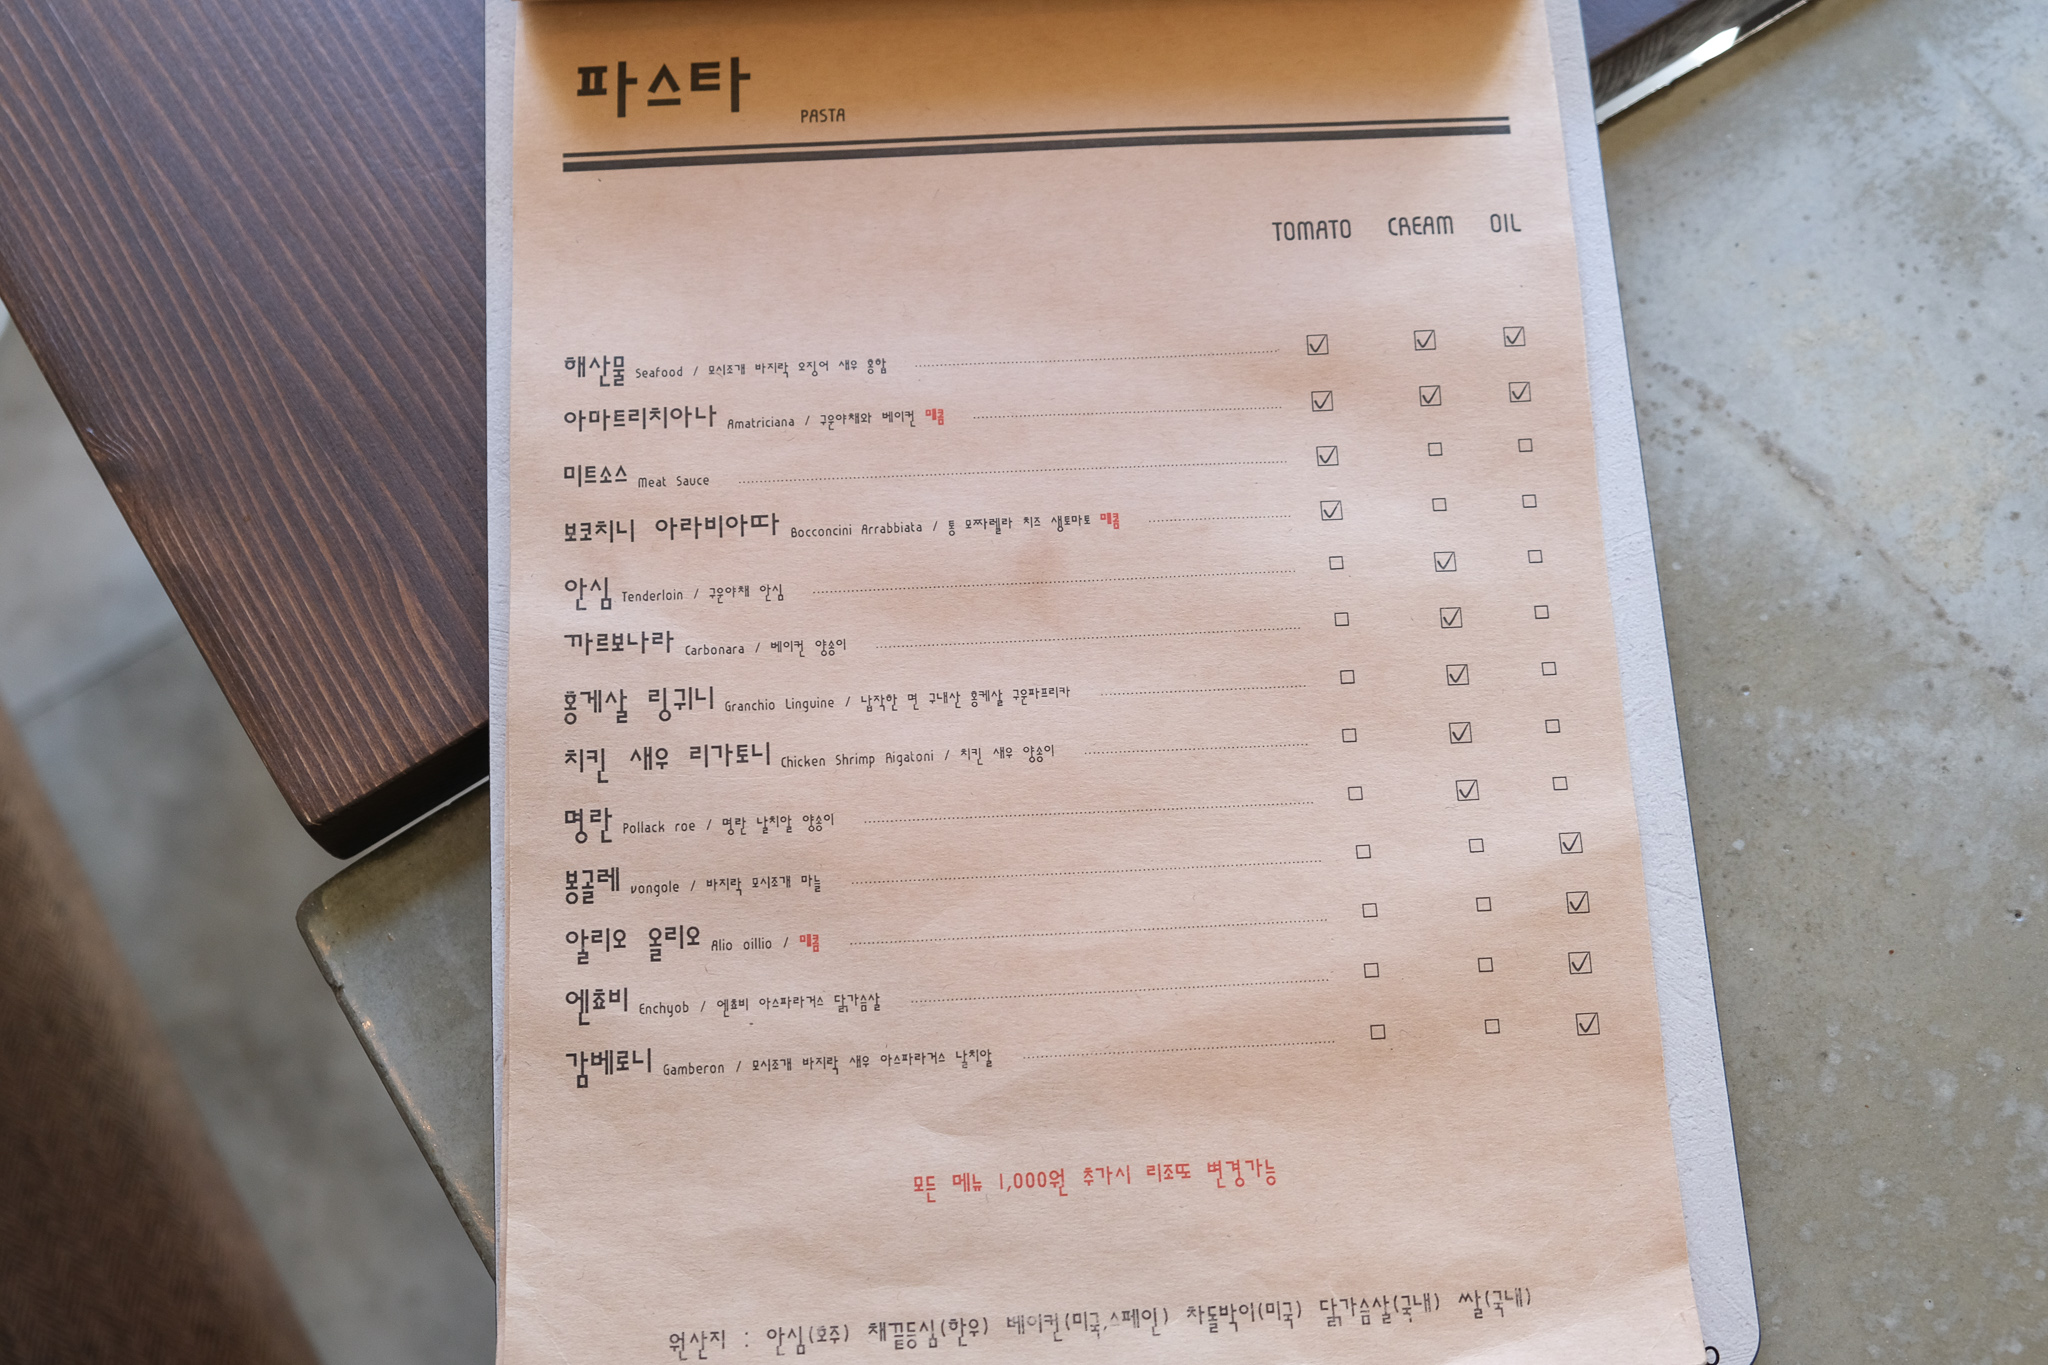 파스타 PASTA
TOMATO CREAM OIL
해산물 Seafood / 모시조개 바지락 오징어 새우 홍합
아마트리치아나 Amatriciana / 구운야채와 베이컨 매콤
미트소스 Meat Sauce
보코치니 아라비아따 Bocconcini Arrabbiata / 통 모짜렐라 치즈 생토마토 매콤
안심 Tenderloin / 구운야채 안심
까르보나라 Carbonara / 베이컨 양송이
홍게살 링귀니 Granchio Linguine / 납작한 면 구내산 홍게살 구운파프리카
치킨 새우 리가토니 Chicken Shrimp Rigatoni / 치킨 새우 양송이
명란 Pollack roe / 명란 날치알 양송이
봉골레 vongole / 바지락 모시조개 마늘
알리오 올리오 Alio oillio / 매콤
엔쵸비 Enchyob / 엔쵸비 아스파라거스 닭가슴살
감베로니 Gamberon / 모시조개 바지락 새우 아스파라거스 날치알
모든 메뉴 1,000원 추가시 리조또 변경가능
원산지 : 안심(호주) 채끝등심(한우) 베이컨(미국,스페인) 차돌박이(미국) 닭가슴살(국내) 쌀(국내)